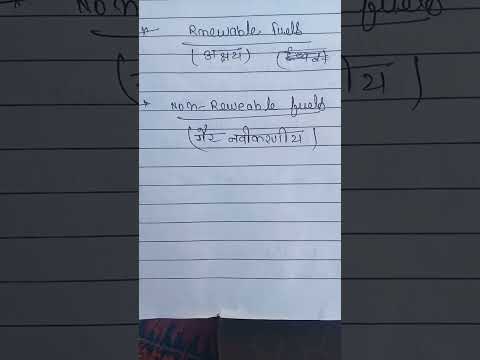 Renewable fuels
(अक्षय) (ईंधन)
Non-Reweable fuels
(गैर नवीकरणीय)